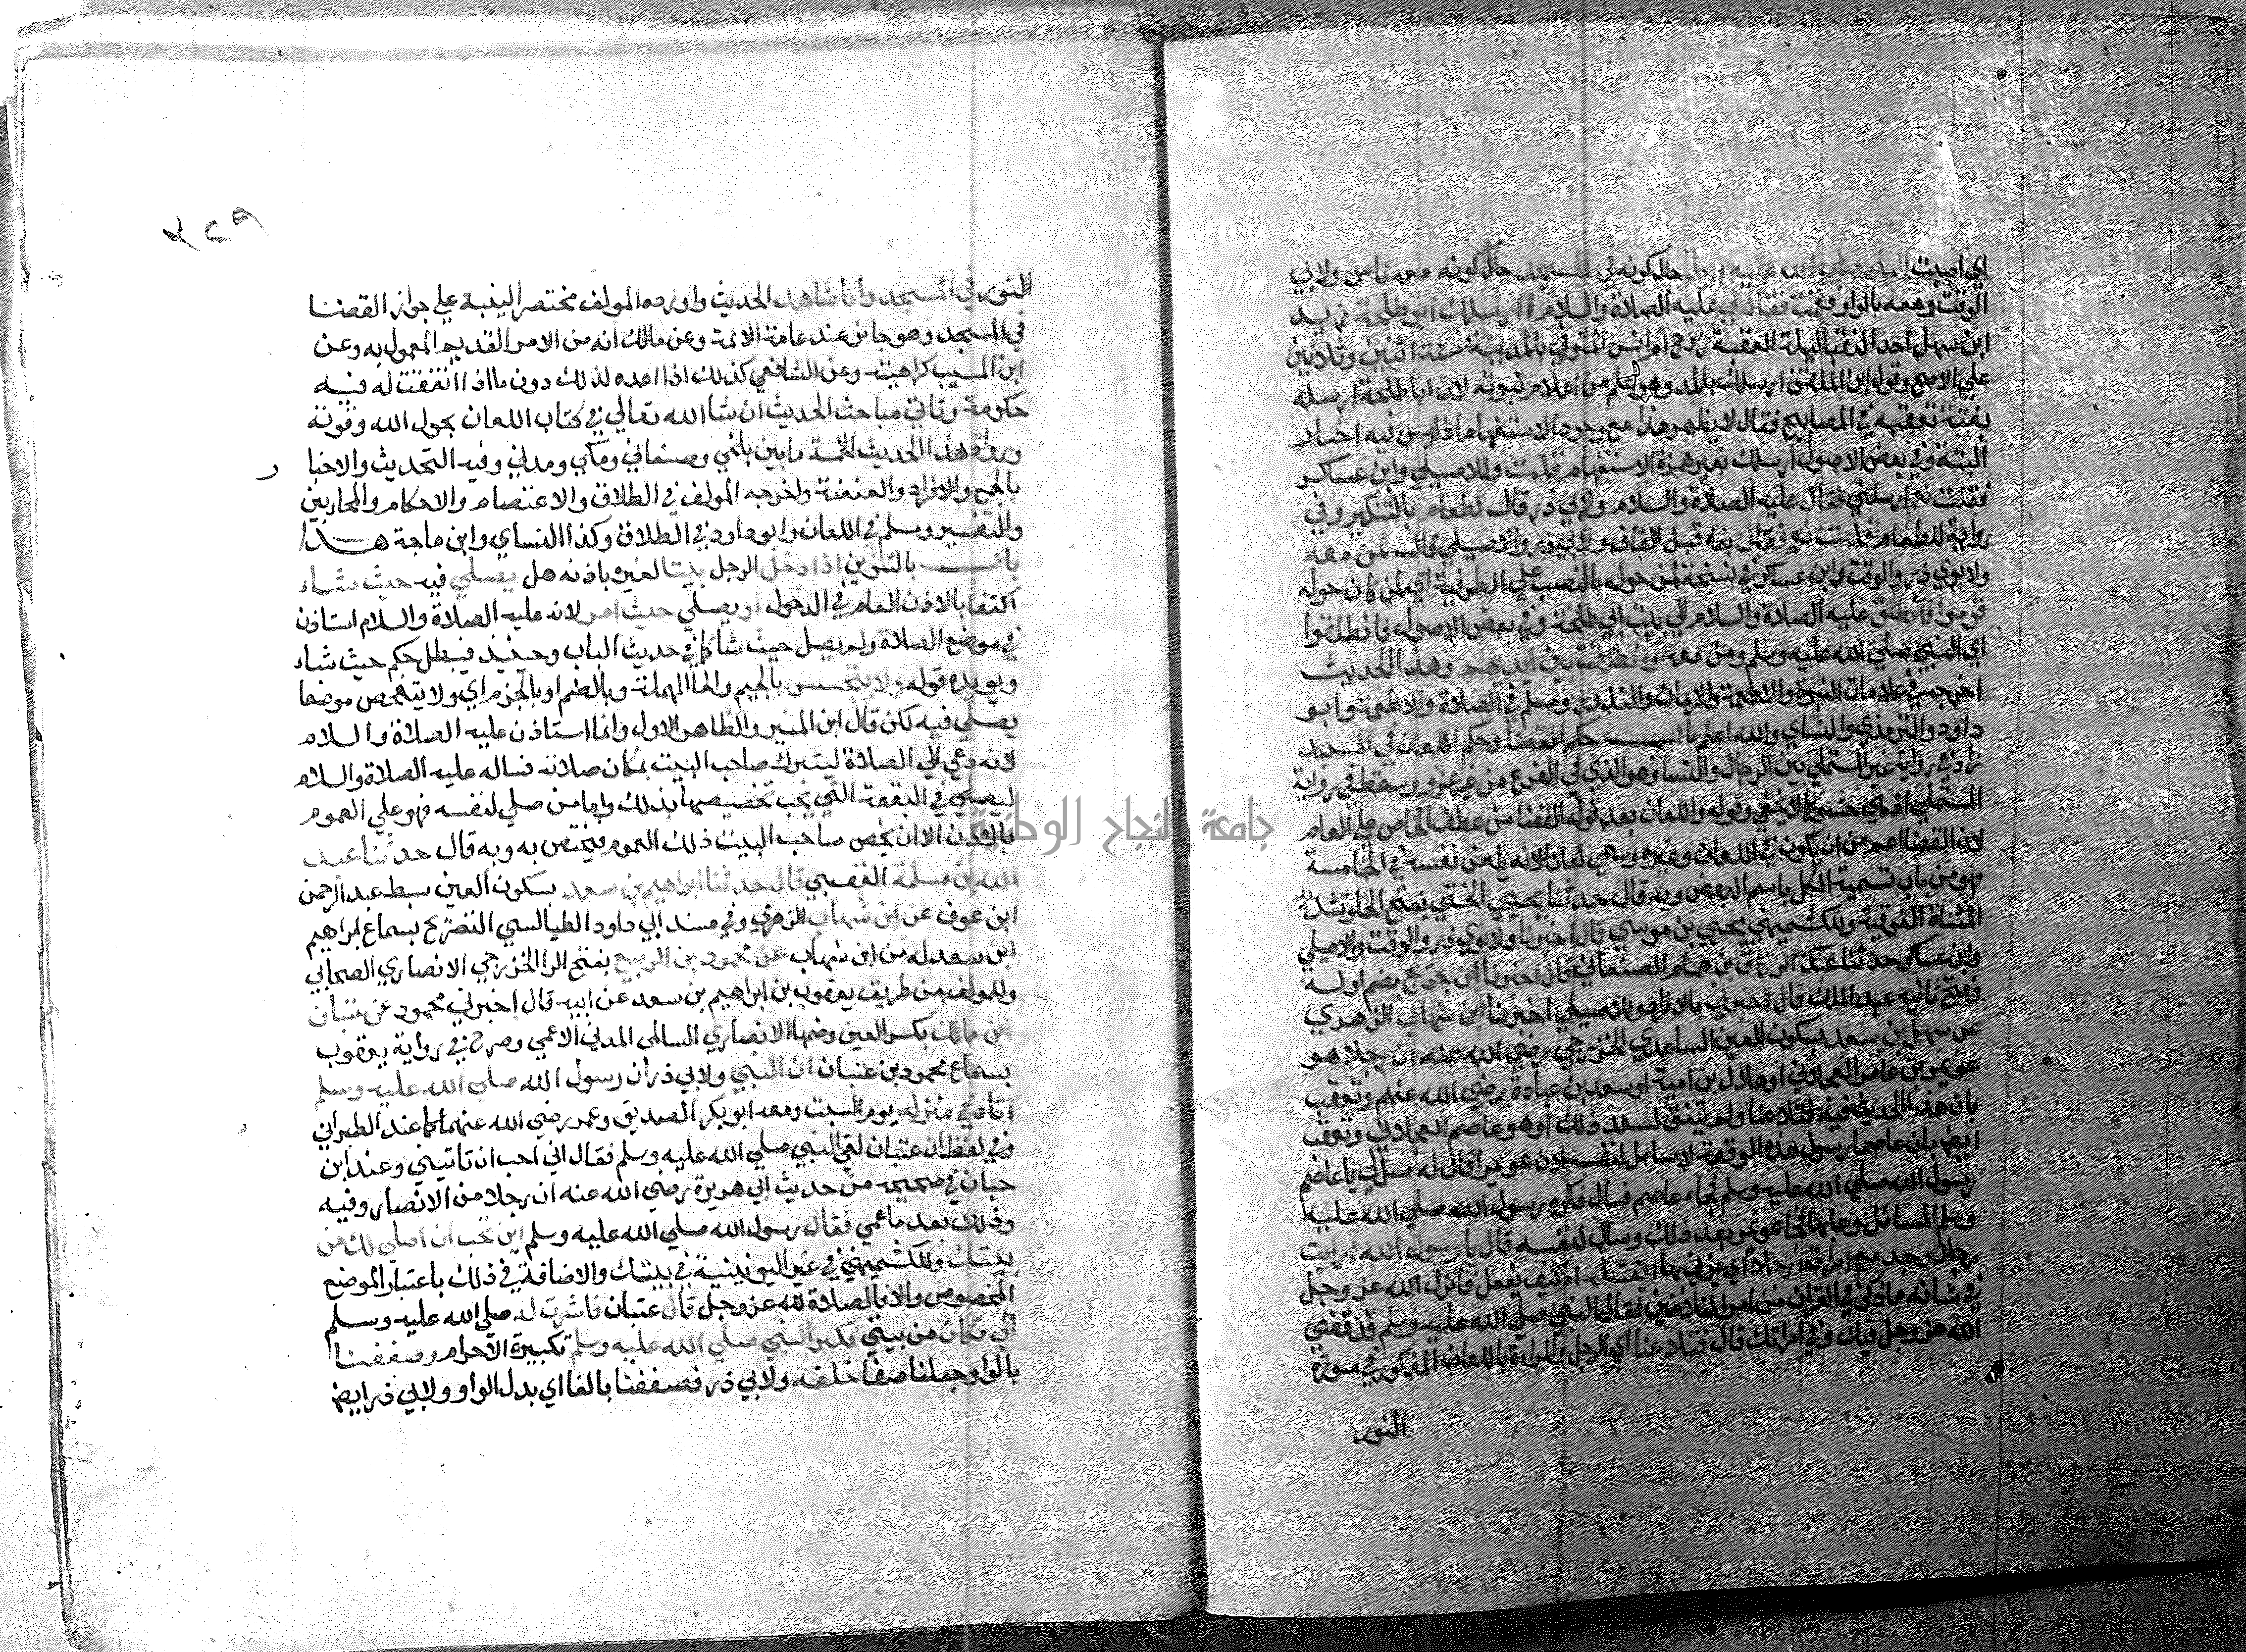 اي اصبت النبي صلي الله عليه وسلم حال كونه في المسجد حال كونه معه ناس ولابي
الوقت ومعه بالواو فقمت فقال لي عليه الصلاة والسلام اارسلك ابو طلحة زيد
ابن سهل احد النقبا ليلة العقبة زوج ام انس المتوفي بالمدينة سنة اثنين وثلاثين
علي الاصح وقول ابن الملقن ارسلك بالمد وهو علم من اعلام نبوته لان ابا طلحة ارسله
بغتة تعقبه في المصابيح فقال لا يظهر هذا مع وجود الاستفهام اذ ليس فيه اخبار
البتة وفي بعض الاصول ارسلك بغير همزة الاستفهام قلت وللاصيلي وابن عساكر
فقلت نعم ارسلني فقال عليه الصلاة والسلام ولابي ذر قال لطعام بالتنكير وفي
رواية للطعام قلت نعم فقال بفا قبل القاف ولابي ذر والاصيلي قال لمن معه
ولابوي ذر والوقت وابن عساكر في نسخة لمن حوله بالنصب علي الظرفية اي لمن كان حوله
قوموا فانطلق عليه الصلاة والسلام الي بيت ابي طلحة وفي بعض الاصول فانطلقوا
اي النبي صلي الله عليه وسلم ومن معه وانطلقت بين ايديهم وهذا الحديث
اخرجه في علامات النبوة والاطعمة والايمان والنذور ومسلم في الصلاة والاطعمة وابو
داود والترمذي والنساي والله اعلم باب حكم القضا وحكم اللعان في المسجد
زاد في رواية غير المستملي بين الرجال والنسا وهو الذي في الفرع من غير عزو وسقط في رواية
المستملي اذ هي حشو كما لا يخفي وقوله واللعان بعد قوله القضا من عطف الخاص علي العام
لان القضا اعم من ان يكون في اللعان وغيره وسمي لعانا لانه يلعن نفسه في الخامسة
فهو من باب تسمية الكل باسم البعض وبه قال حدثنا يحيي الختي بفتح الخا وتشديد
المثناة الفوقية وللكشميهني يحيي بن موسي قال اخبرنا ولابوي ذر والوقت والاصيلي
وابن عساكر حدثنا عبد الرزاق بن همام الصنعاني قال اخبرنا ابن جريج بضم اوله
وفتح ثانيه عبد الملك قال اخبرني بالافراد وللاصيلي اخبرنا ابن شهاب الزهري
عن سهل بن سعد بسكون العين الساعدي الخزرجي رضي الله عنه ان رجلا هو
عويمر بن عامر العجلاني او هلال بن امية او سعد بن عبادة رضي الله عنهم وتعقب
بان هذا الحديث فيه فتلاعنا ولم يتفق لسعد ذلك او هو عاصم العجلاني وتعقب
ايضا بان عاصما رسول هذه الوقعة لا سايل لنفسه لان عويمرا قال له سل لي يا عاصم
رسول الله صلي الله عليه وسلم فجاء عاصم فسال فكره رسول الله صلي الله عليه
وسلم المسائل وعابها فجا عويمر بعد ذلك وسال لنفسه قال يا رسول الله ارايت
رجلا وجد مع امراته رجلا اي يزني بها ايقتله ام كيف يفعل فانزل الله عز وجل
في شانه ما ذكر في القران من امر المتلاعنين فقال النبي صلي الله عليه وسلم قد قضي
الله عز وجل فيك وفي امراتك قال فتلاعنا اي الرجل والمراة باللعان المذكور في سورة
النور
٢٤٩
النور في المسجد وانا شاهد الحديث واورده المولف مختصرا لينبه علي جواز القضا
في المسجد وهو جائز عند عامة الائمة وعن مالك انه من الامر القديم المعمول به وعن
ابن المسيب كراهيته وعن الشافعي كذلك اذا اعده لذلك دون ما اذا اتفقت له فيه
حكومة وتاتي مباحث الحديث ان شا الله تعالي في كتاب اللعان بحول الله وقوته
ورواة هذا الحديث الخمسة ما بين بلخي وصنعاني ومكي ومدني وفيه التحديث والاخبا ر
بالجمع والافراد والعنعنة واخرجه المولف في الطلاق والاعتصام والاحكام والمحاربين
والتفسير ومسلم في اللعان وابو داود في الطلاق وكذا النساي وابن ماجة هذا
باب بالتنوين اذا دخل الرجل بيتا لغيره باذنه هل يصلي فيه حيث شاء
اكتفا بالاذن العام في الدخول او يصلي حيث امر لانه عليه الصلاة والسلام استاذن
في موضع الصلاة ولم يصل حيث شا كما في حديث الباب وحينئذ فيبطل حكم حيث شاء
ويويده قوله ولا يتجسس بالجيم والحا المهملة وبالضم او بالجزم اي ولا يتفحص موضعا
يصلي فيه لكن قال ابن المنير والظاهر الاول وانما استاذن عليه الصلاة والسلام
لانه دعي الي الصلاة ليتبرك صاحب البيت بمكان صلاته فساله عليه الصلاة والسلام
ليصلي في البقعة التي يحب تخصيصها بذلك واما من صلي لنفسه فهو علي العموم
بالاذن الا ان يخص صاحب البيت ذلك العموم فيختص به وبه قال حدثنا عبد
الله بن مسلمة القعنبي قال حدثنا ابراهيم بن سعد بسكون العين سبط عبد الرحمن
ابن عوف عن ابن شهاب الزهري وفي مسند ابي داود الطيالسي التصريح بسماع ابراهيم
ابن سعد له من ابن شهاب عن محمود بن الربيع بفتح الرا الخزرجي الانصاري الصحابي
وللمولف من طريق يعقوب بن ابراهيم بن سعد عن ابيه قال اخبرني محمود عن عتبان
ابن مالك بكسر العين وضمها الانصاري السالمي المدني الاعمي وصرح في رواية يعقوب
بسماع محمود بن عتبان ان النبي ولابي ذر ان رسول الله صلي الله عليه وسلم
اتاه في منزله يوم السبت ومعه ابو بكر الصديق وعمر رضي الله عنهما كما عند الطبراني
وفي لفظ ان عتبان لقي النبي صلي الله عليه وسلم فقال اني احب ان تاتيني وعند ابن
حبان في صحيحه من حديث ابي هريرة رضي الله عنه ان رجلا من الانصار وفيه
وذلك بعد ما عمي فقال رسول الله صلي الله عليه وسلم اين تحب ان اصلي لك من
بيتك وللكشميهني في غير اليونينية في بيتك والاضافة في ذلك باعتبار الموضع
المخصوص والا فالصلاة لله عز وجل قال عتبان فاشرت له صلي الله عليه وسلم
الي مكان من بيتي فكبر النبي صلي الله عليه وسلم تكبيرة الاحرام وصففنا
بالواو وجعلنا صفا خلفه ولابي ذر فصففنا بالفا اي بدل الواو ولابي ذر ايضا
جامعة النجاح الوطنية